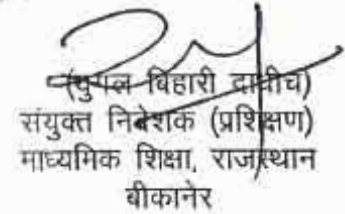 (युगल बिहारी दाधीच)
संयुक्त निदेशक (प्रशिक्षण)
माध्यमिक शिक्षा, राजस्थान
बीकानेर